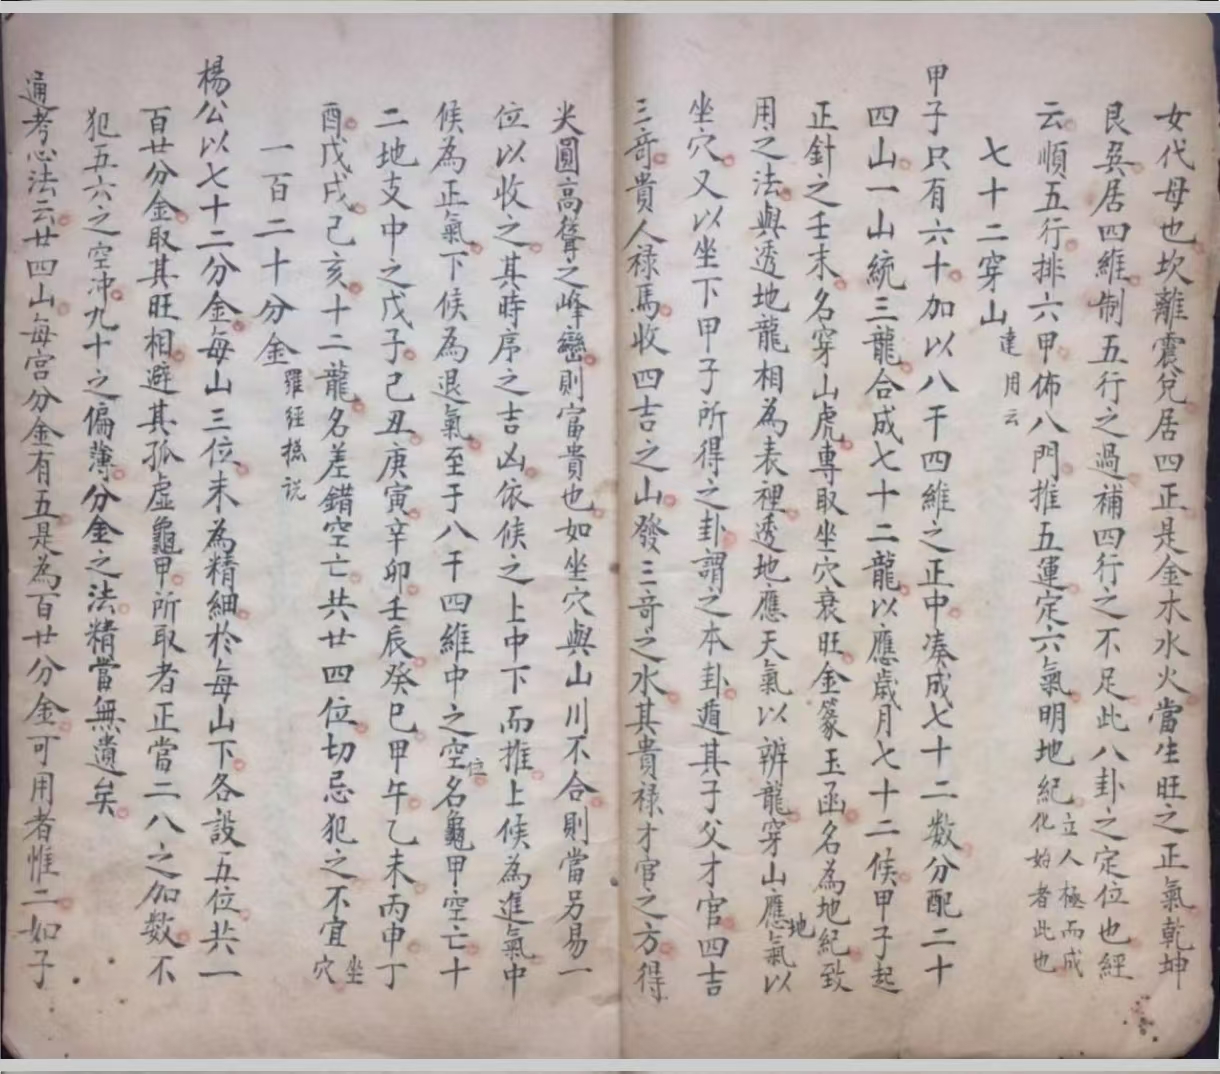 女代母也坎離震兌居四正是金木水火當生旺之正氣乾坤
艮巽居四維制五行之過補四行之不足此八卦之定位也經
云順五行排六甲佈八門推五運定六氣明地紀立人極而成化始者此也
七十二穿山 達月云
甲子只有六十加以八干四維之正中湊成七十二數分配二十
四山一山統三龍合成七十二龍以應歲月七十二候甲子起
正針之壬末名穿山虎專取坐穴衰旺金篆玉函名為地紀致
用之法與透地龍相為表裡透地應天氣以辨龍穿山應地氣以
坐穴又以坐下甲子所得之卦謂之本卦遁其子父才官四吉
三奇貴人祿馬收四吉之山發三奇之水其貴祿才官之方得
尖圓高聳之峰巒則富貴也如坐穴與山川不合則當另易一
位以收之其時序之吉凶依候之上中下而推上候為進氣中
候為正氣下候為退氣至于八干四維中之空位名龜甲空亡十
二地支中之戊子己丑庚寅辛卯壬辰癸巳甲午乙未丙申丁
酉戊戌己亥十二龍名差錯空亡共廿四位切忌犯之不宜坐穴
一百二十分金 羅經撡說
楊公以七十二分金每山三位未為精細於每山下各設五位共一
百廿分金取其旺相避其孤虛龜甲所取者正當二八之加數不
犯五六之空沖九十之偏薄分金之法精當無遺矣
通考心法云廿四山每宮分金有五是為百廿分金可用者惟二如子